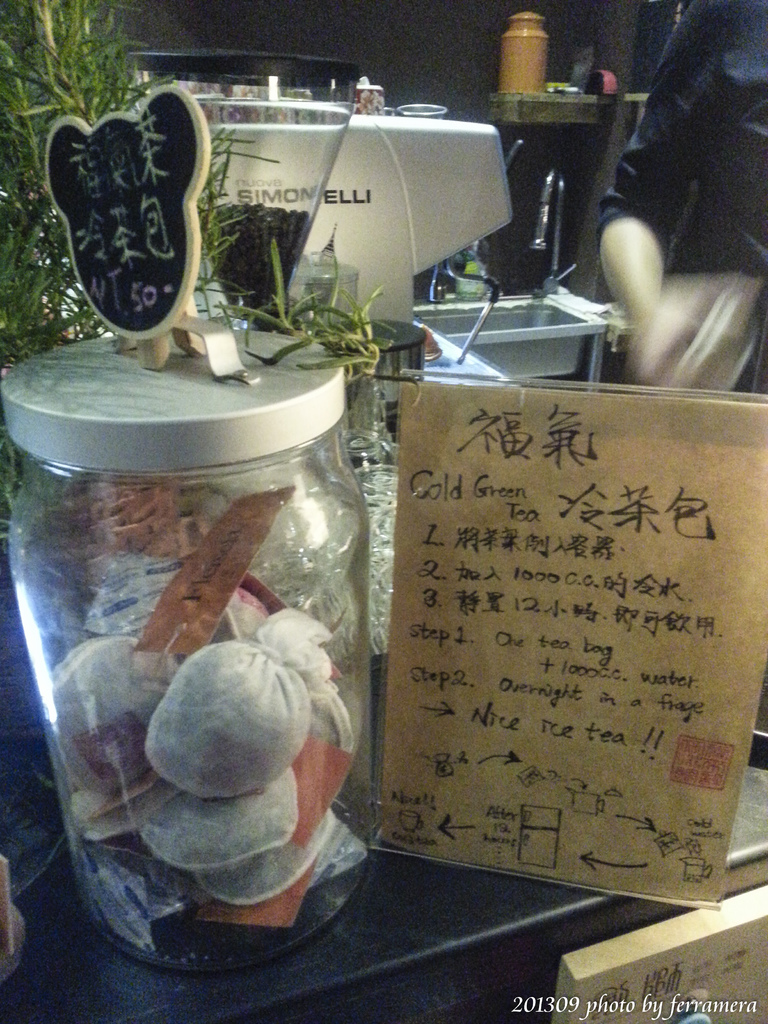 冷茶包
NT.50-
nuova
SIMON ELLI
福氣
Cold Green
Tea 冷茶包
1. 將茶葉倒入容器.
2. 加入 1000 c.c. 的冷水.
3. 靜置 12 小時. 即可飲用.
step 1. One tea bag
+ 1000c.c. water.
step 2. overnight in a frage
→ Nice ice tea !!
Nice!!
After
12
hours
Cold
water
201309 photo by ferramera